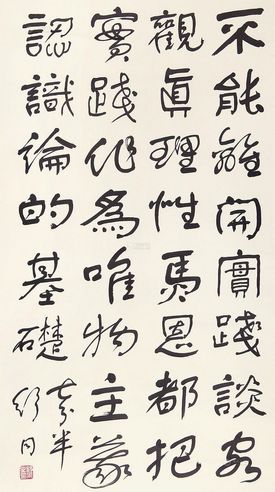 不能離開實踐談客
觀眞理性馬恩都把
實踐作為唯物主義
認識論的基礎
舒同